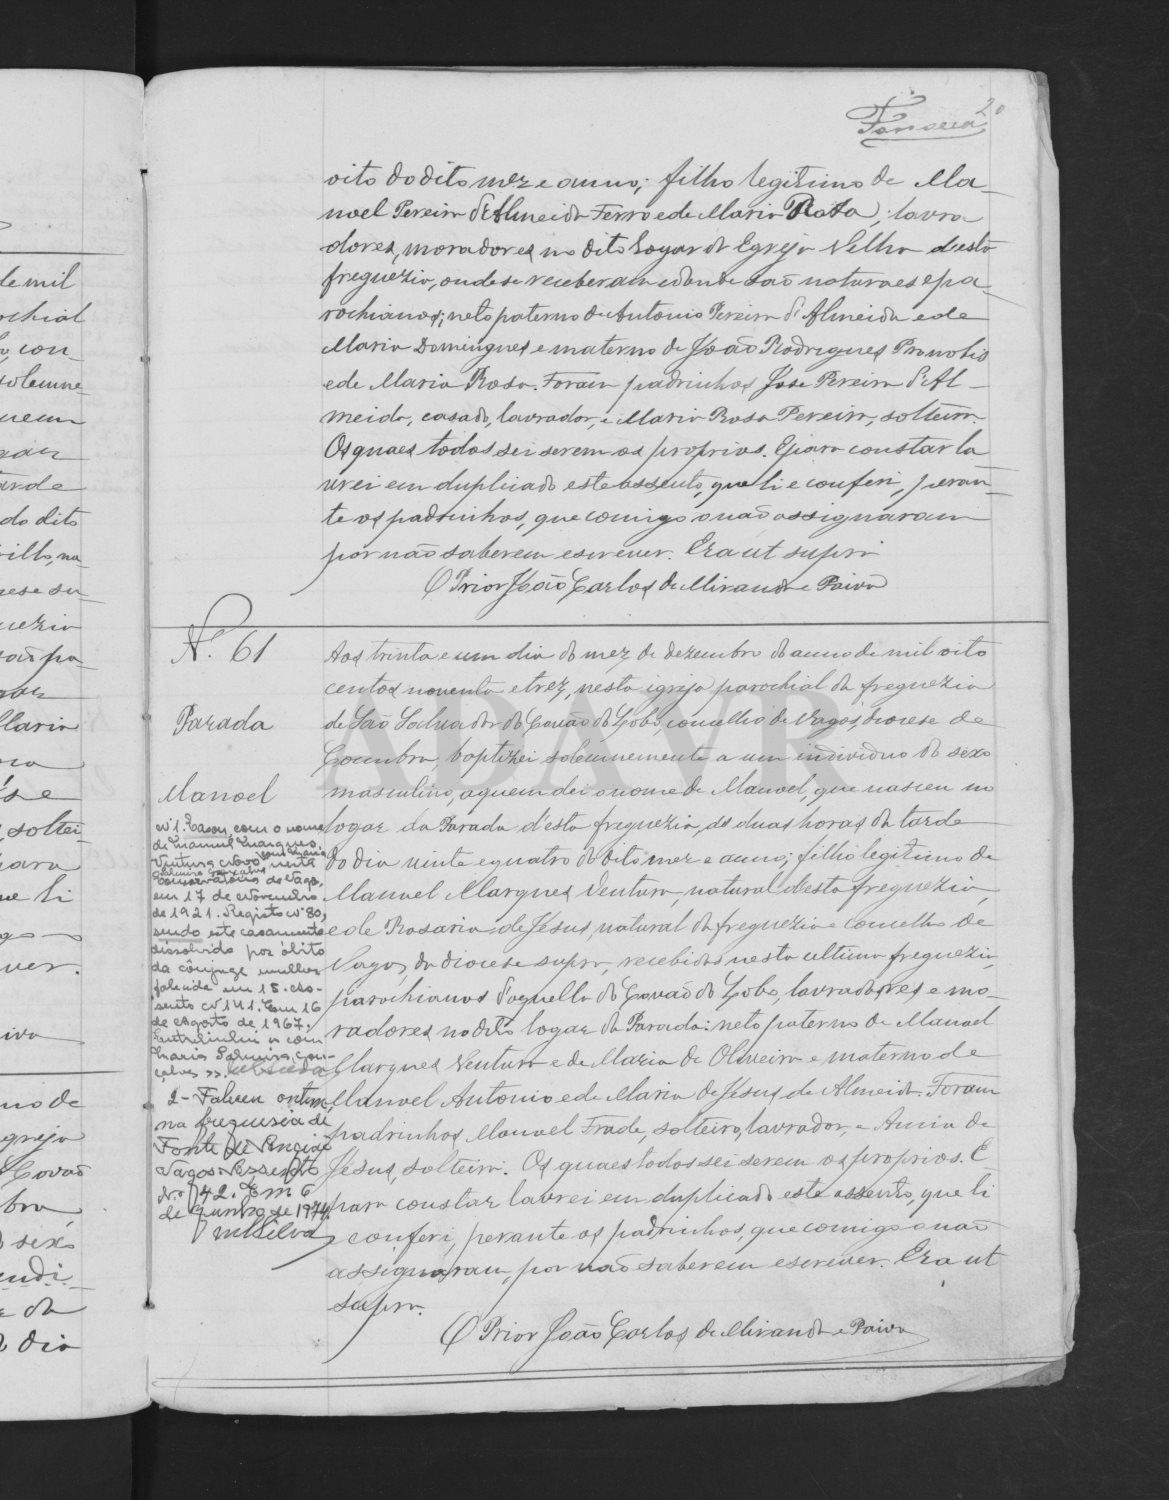 20
Fonseca
oito do dito mez e anno; filho legitimo de Ma-
noel Pereira d'Almeida Ferro e de Maria Rata; lavra
dores, moradores no dito Logar da Egreja Velha d'esta
freguezia, onde se receberam e donde são naturaes e pa-
rochianos; neto paterno de Antonio Pereira d'Almeida e de
Maria Domingues e materno de João Rodrigues
e de Maria Rosa. Foram padrinhos Jose Pereira d'Al-
meida, casado, lavrador, e Maria Rosa Pereira, solteira.
Os quaes todos sei serem os proprios. E para constar la
vrei em duplicado este assento, que li e conferi, peran-
te os padrinhos, que comigo o não assignaram
por não saberem escrever. Era ut supra
O Prior João Carlos de Miranda e Paiva
N.º 61
Parada
Manoel
Aos trinta e um dia do mez de dezembro do anno de mil oito
centos noventa e trez, nesta igreja parochial da freguezia
de São Salvador do Covão do Lobo, concelho de Vagos, diocese de
Coimbra, baptizei solemnemente a um individuo do sexo
masculino, a quem dei o nome de Manoel, que nasceu no
logar da Parada d'esta freguezia, ás duas horas da tarde
do dia vinte e quatro do dito mez e anno; filho legitimo de
Manoel Marques Ventura, natural d'esta freguezia,
e de Rosaria de Jesus, natural da freguezia e concelho de
Vagos, da diocese supra, recebidos nesta ultima freguezia,
parochianos d'aquella do Covão do Lobo, lavradores e mo-
radores no dito logar da Parada: neto paterno de Manoel
Marques Ventura e de Maria de Oliveira e materno de
Manoel Antonio e de Maria de Jesus de Almeida. Foram
padrinhos Manoel Frade, solteiro, lavrador, e Anna de
Jesus, solteira. Os quaes todos sei serem os proprios. E
para constar lavrei em duplicado este assento, que li
conferi, perante os padrinhos, que comigo o não
assignaram, por não saberem escrever. Era ut
supra.
O Prior João Carlos de Miranda e Paiva
Nº 1. Casou, com o nome
de Manuel Marques
Ventura Novo com Maria
Palmira Gonçalves nesta
Conservatória de Vagos,
em 17 de Novembro
de 1921. Registo nº 80,
sendo este casamento
dissolvido por óbito
da cônjuge mulher
falecida em 15. As-
sento nº 141. Em 16
de Agosto de 1967.
Entrelinhei "com
Maria Palmira Gon-
çalves".
2- Faleceu ontem,
na freguesia de
Fonte de Angeão
Vagos. Assento
N.º 42. Em 6
de Junho de 1974.
MSilva
ADAVR